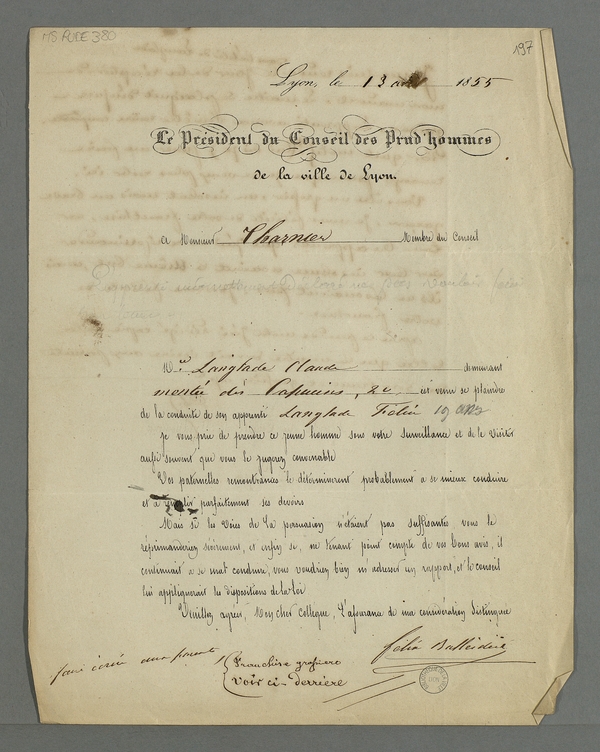 MS RUDE 380
197
Lyon, le 13 août 1855
Le Président du Conseil des Prud'hommes
de la ville de Lyon.
a Monsieur Charnier Membre du Conseil
M. Langlade Claude demeurant
montée des Capucins, 20 est venu se plaindre
de la conduite de son apprenti Langlade 19 ans
Je vous prie de prendre ce jeune homme sous votre surveillance et de le visiter
aussi souvent que vous le jugerez convenable
Vos paternelles remontrances le détermineront probablement a se mieux conduire
et a remplir parfaitement ses devoirs
Mais si les voies de la persuasion n'étaient pas suffisantes vous le
réprimanderiez sévèrement, et enfin si, ne tenant point compte de vos bons avis, il
continuait a se mal conduire, vous voudriez bien m'adresser un rapport, et le conseil
lui appliquerait les dispositions de la loi
Veuillez agréer, Mon cher Collègue, l'assurance de ma considération distinguée
félix
franchise
voir ci-derrière